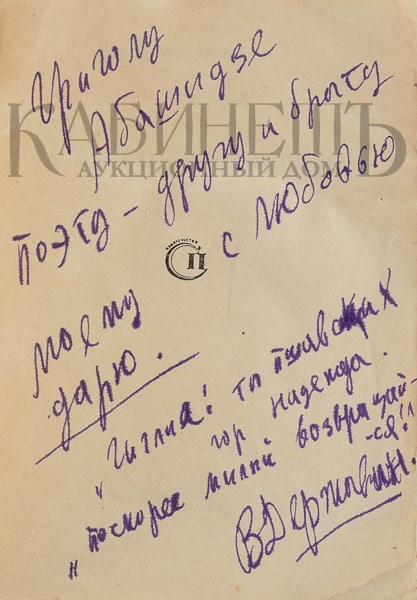 Григолу
Абашидзе
КАБИНЕТЪ
АУКЦИОННЫЙ ДОМ
Поэту – другу и брату
с любовью
ИЗДАТЕЛЬСТВО
СП
моему
дарю.
"Циглиа! ты пшавских
гор надежда.
"поскорее милый возвращай-
-ся!"
ВДержавин.